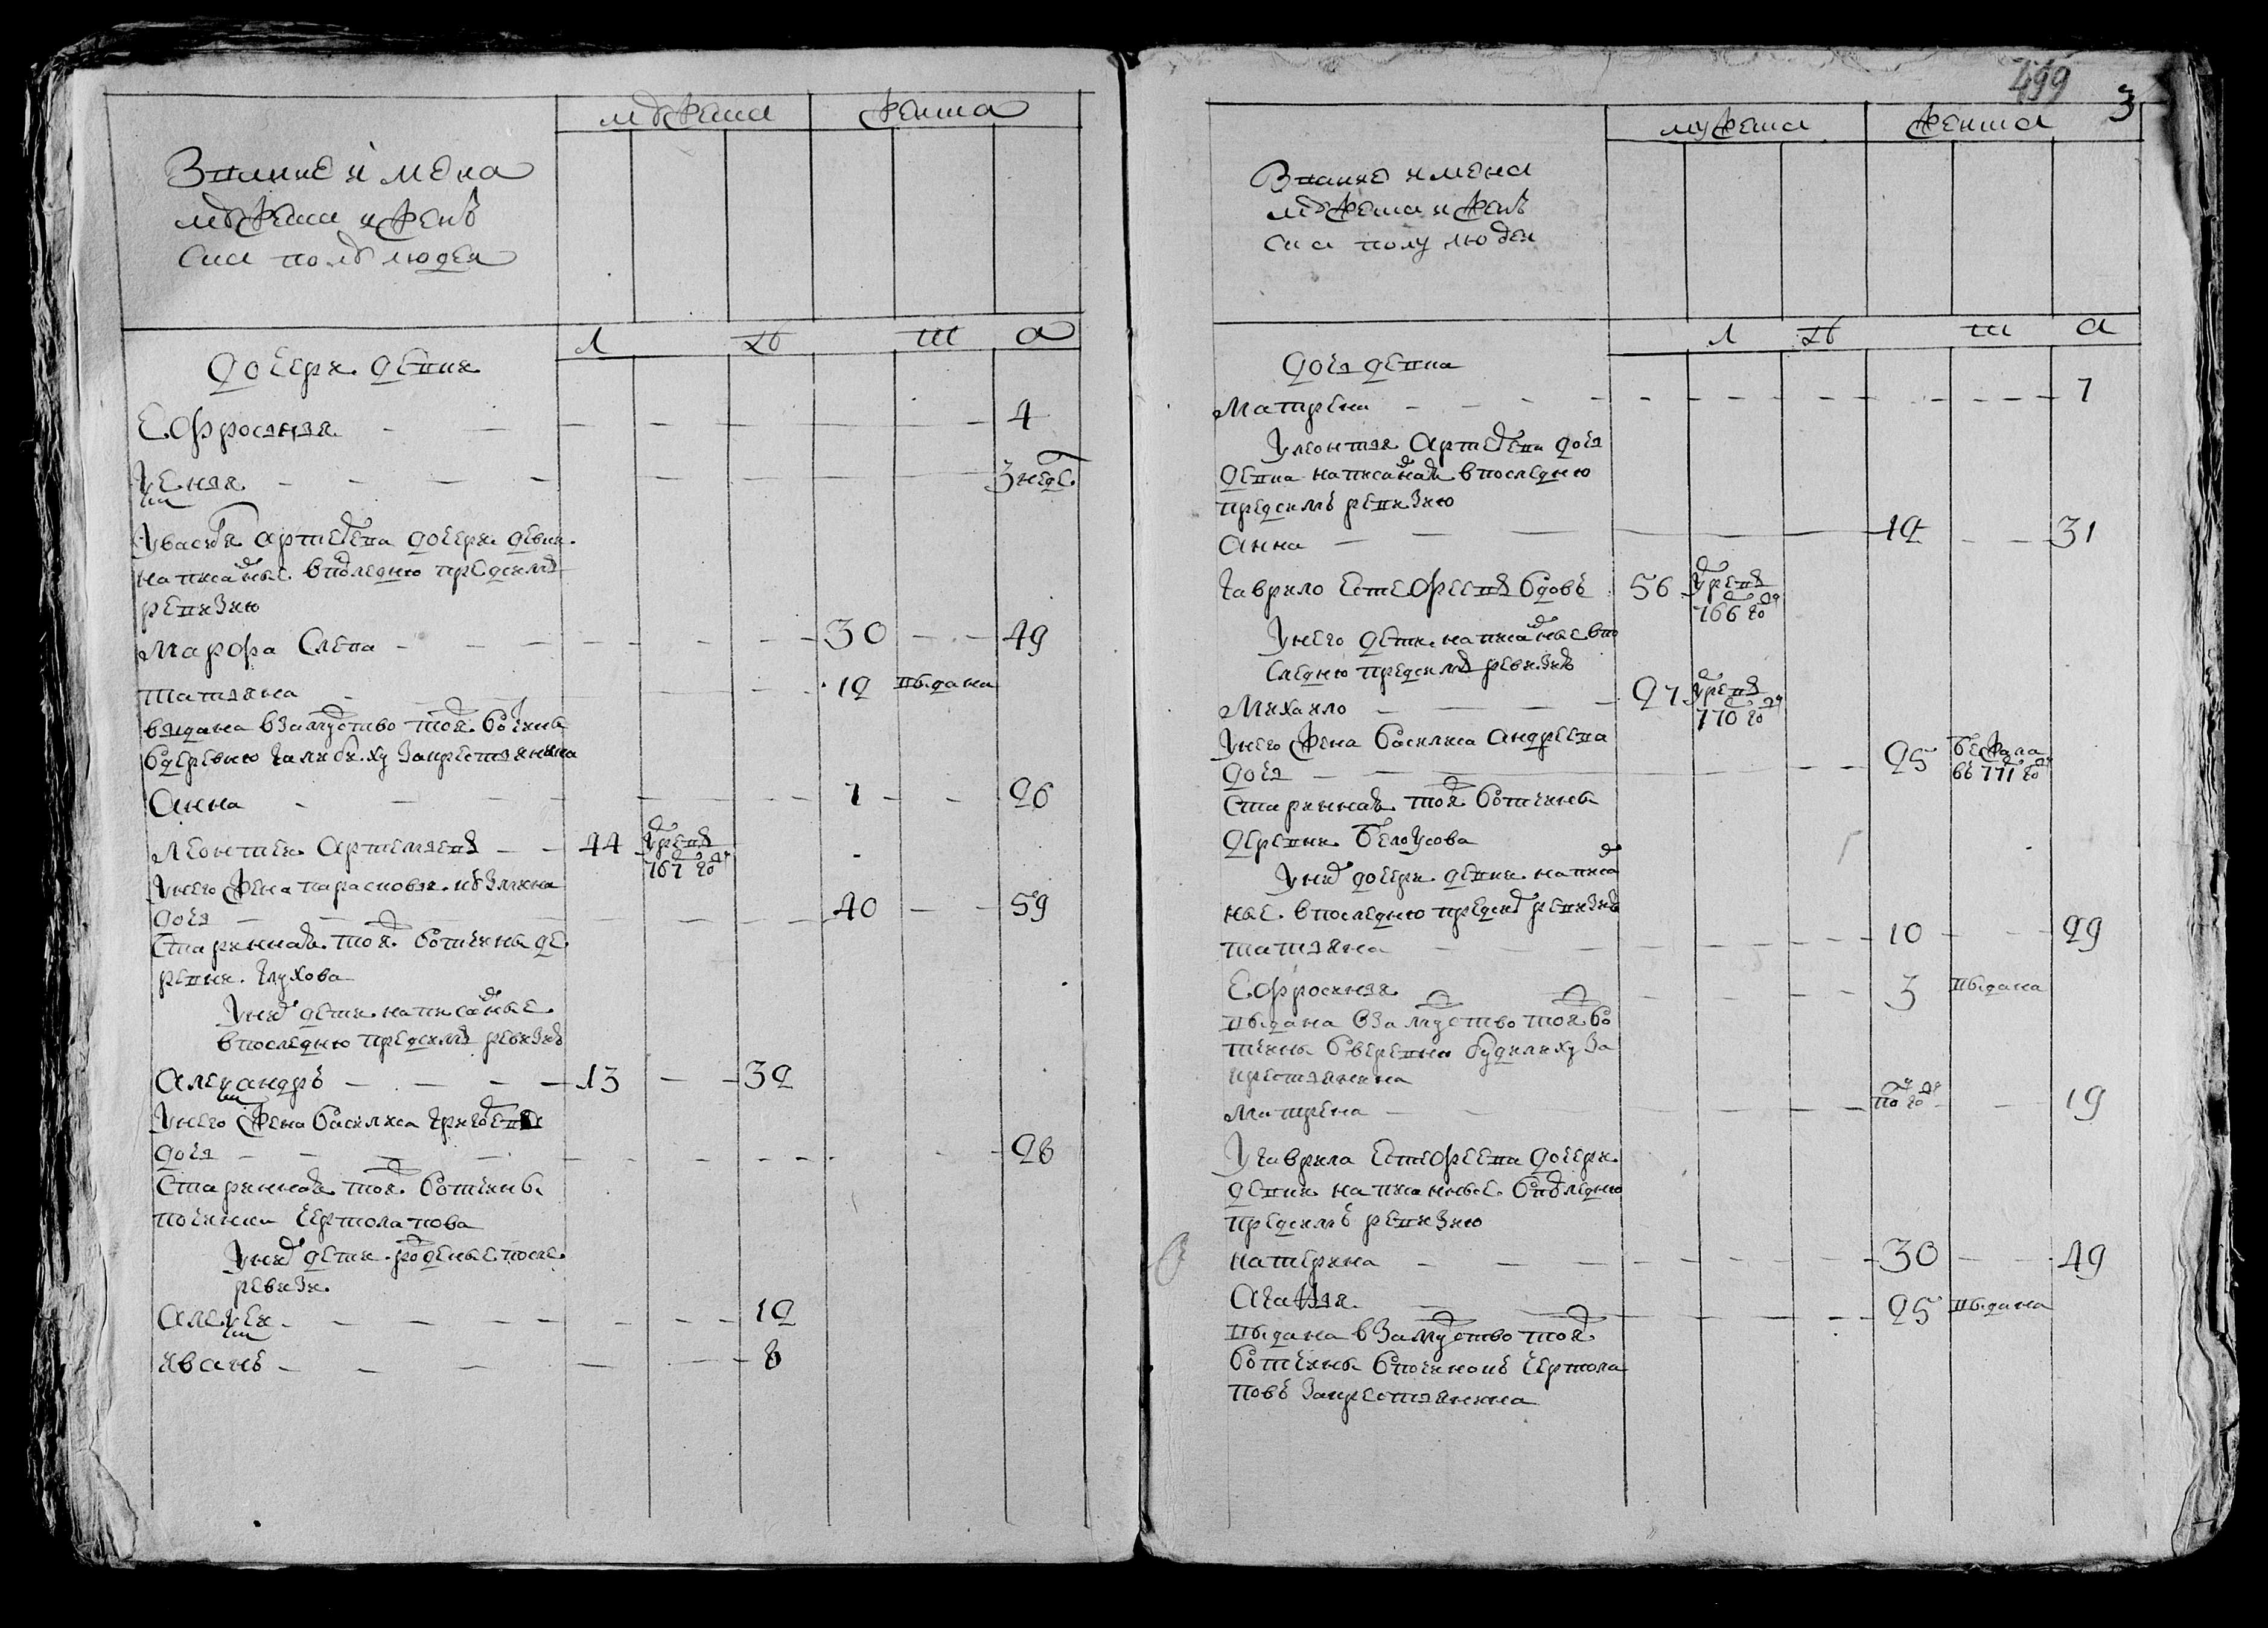 мужеска женска
Звание и мена
мужеска и женъ
ска полу людеи
л ѣ т а
дочери девки
Ефросинья 4
Ксения 3 недѣ.
У васки Артемева дочери девки
написаные в последнюю пред сим
ревизию
Марфа слепа 30 49
Татьяна 12 выдана
выдана взамуство тои вотчины
в деревню за крестьянина
Анна 7 26
Леонтеи Артемьевъ 44 умре въ
767 году
у него жена Парасковья Кузмина
дочь 40 59
старинная тои вотчины де
ревни Глухова
у них дети написаные
в последнюю пред сим ревизию
Александръ 13 32
у него жена Василиса Григорева
дочь 28
старинная тои вотчины
починка Чертолапова
у них дети рожденые после
ревизи
Алексеи 12
Иванъ 8
499
3
мужеска женска
Звание и мена
мужеска и женъ
ска полу людеи
л ѣ т а
дочь девка
Матрена 7
У Леонтья Артемева дочь
девка написаная в последнюю
пред симъ ревизию
Анна 12 31
Гаврило Естефеевъ вдовъ 56 умре въ
766 году
у него дети написаные в по
следнюю пред сим ревизию
Михаило 27 умре въ
770 году
у него жена Василиса Андреева
дочь 25 бежала
въ 771 году
старинная тои вотчины
деревни Белоусова
у них дочери девки написа
ные в последнюю пред сим ревизию
Татьяна 10 29
Ефросинья 3 выдана
выдана взамуство тои во
тчины в деревню Будилиху за
крестьянина
Матрена по 19
У Гаврила Естефеева дочери
девки написанные в последнюю
пред симъ ревизию
Катерина 30 49
Агафья 25 выдана
выдана взамуство тои
вотчины в починокъ Чертола
повъ за крестьянина